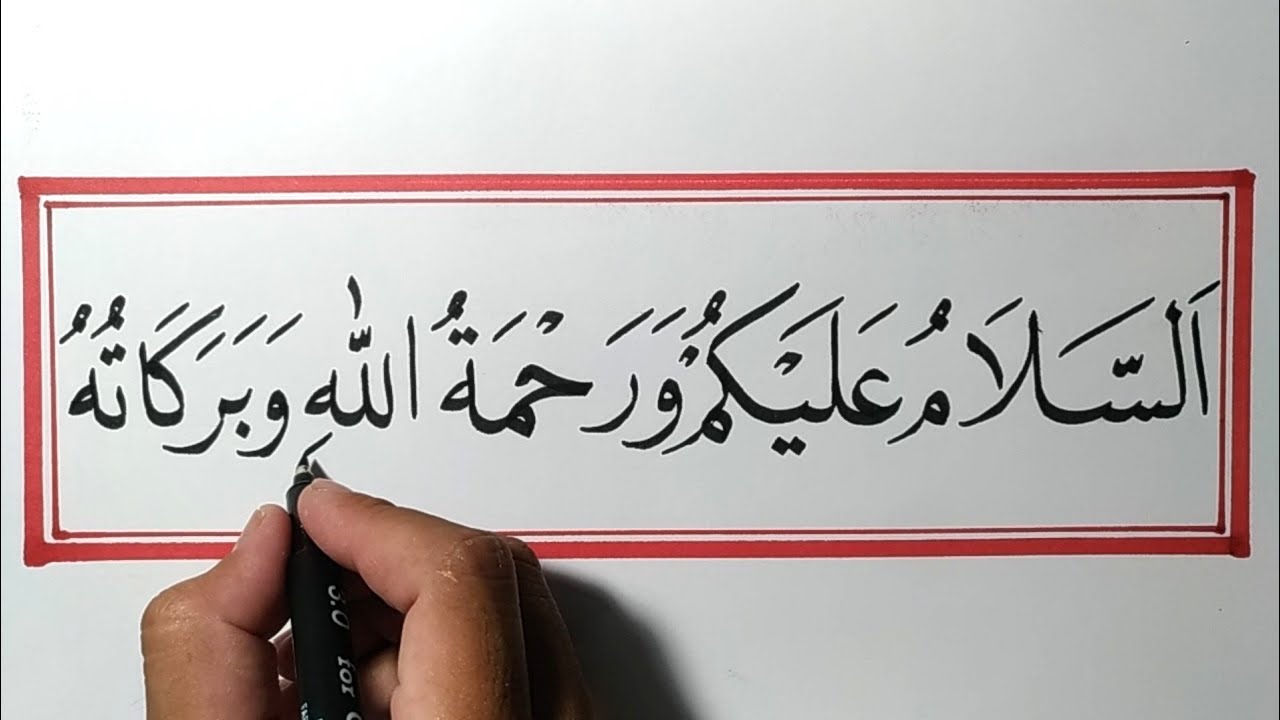 اَلسَّلَامُ عَلَيْكُمْ وَرَحْمَةُ اللّٰهِ وَبَرَكَاتُهُ
5.0 for